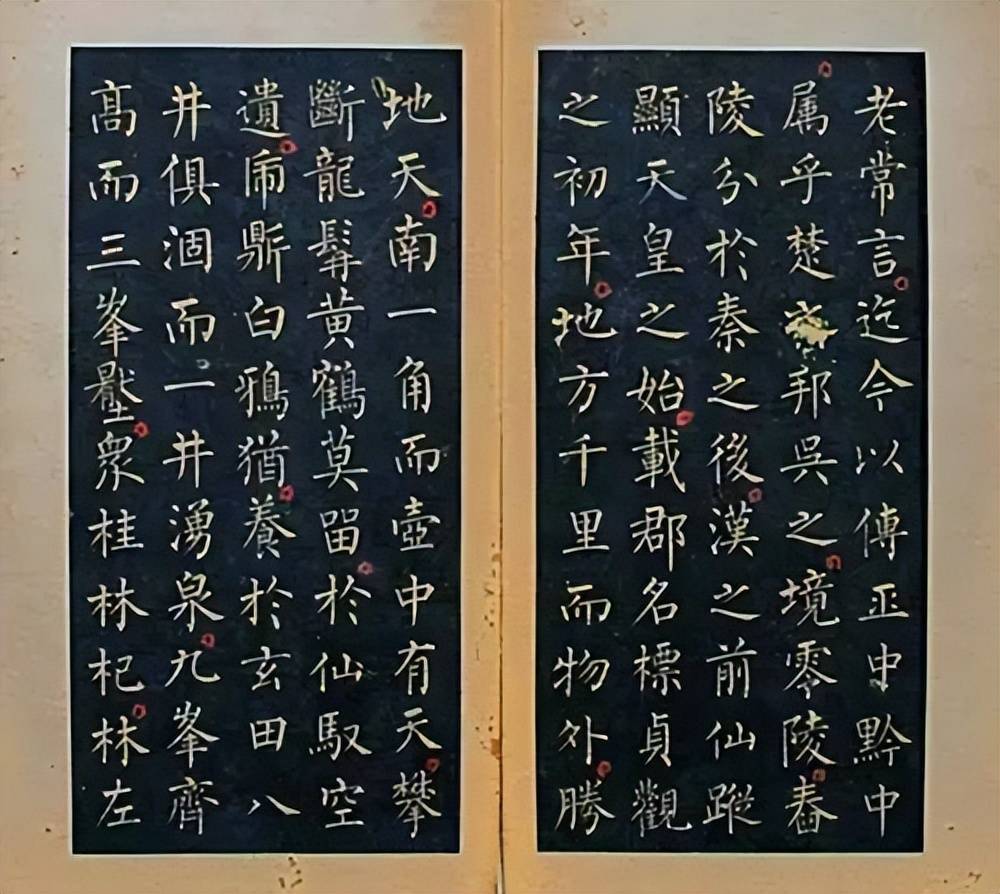 老常言迄今以傳正中黔中
属乎楚之邦吳之境零陵舂
陵分於秦之後漢之前仙蹤
顯天皇之始載郡名標貞觀
之初年地方千里而物外勝
地天南一角而壺中有天攀
斷龍髯黄鶴莫留於仙馭空
遺虎鼎白鴉猶養於玄田八
井俱涸而一井湧泉九峯齊
髙而三峯壓衆桂林杞林左